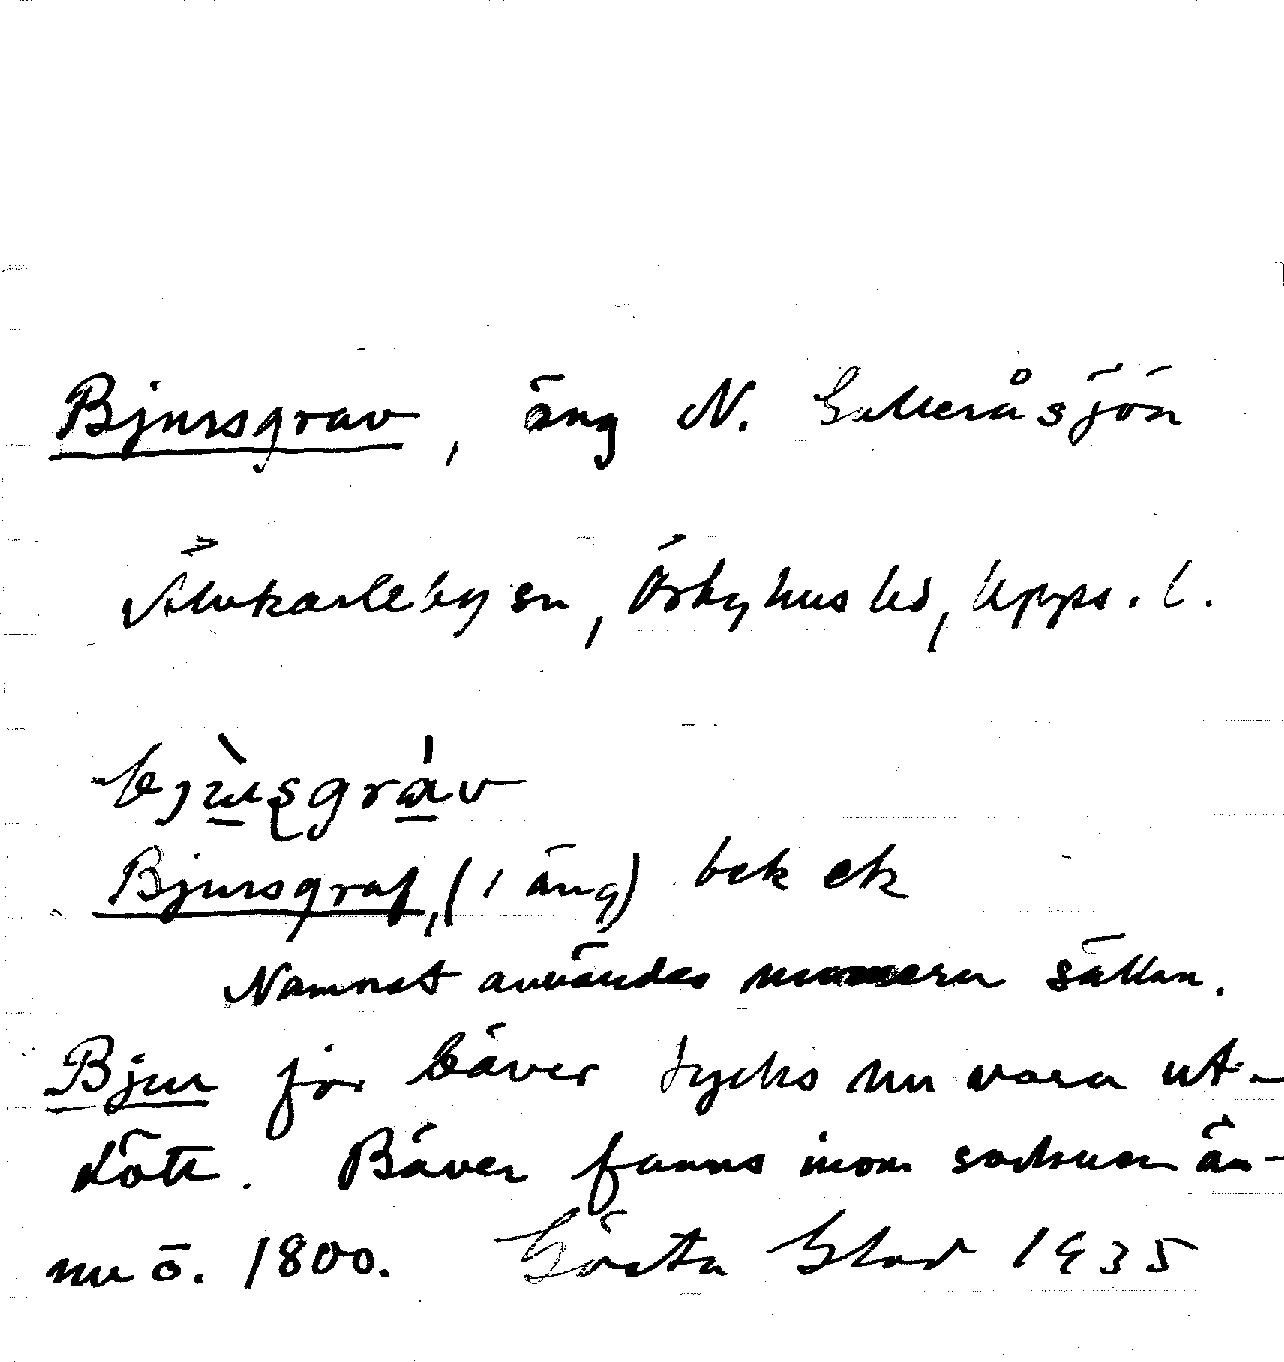 Bjursgrav, äng N. Sälleråsjön
Älvkarleby sn, Örbyhus hd, Upps. l.
bjùsgráv
Bjursgraf, (1 äng) bek ek
Namnet användes numera sällan.
Bjur för bäver tycks nu vara ut-
dött. Bäver fanns inom socknen än-
nu ö. 1800. Gösta Glad 1935